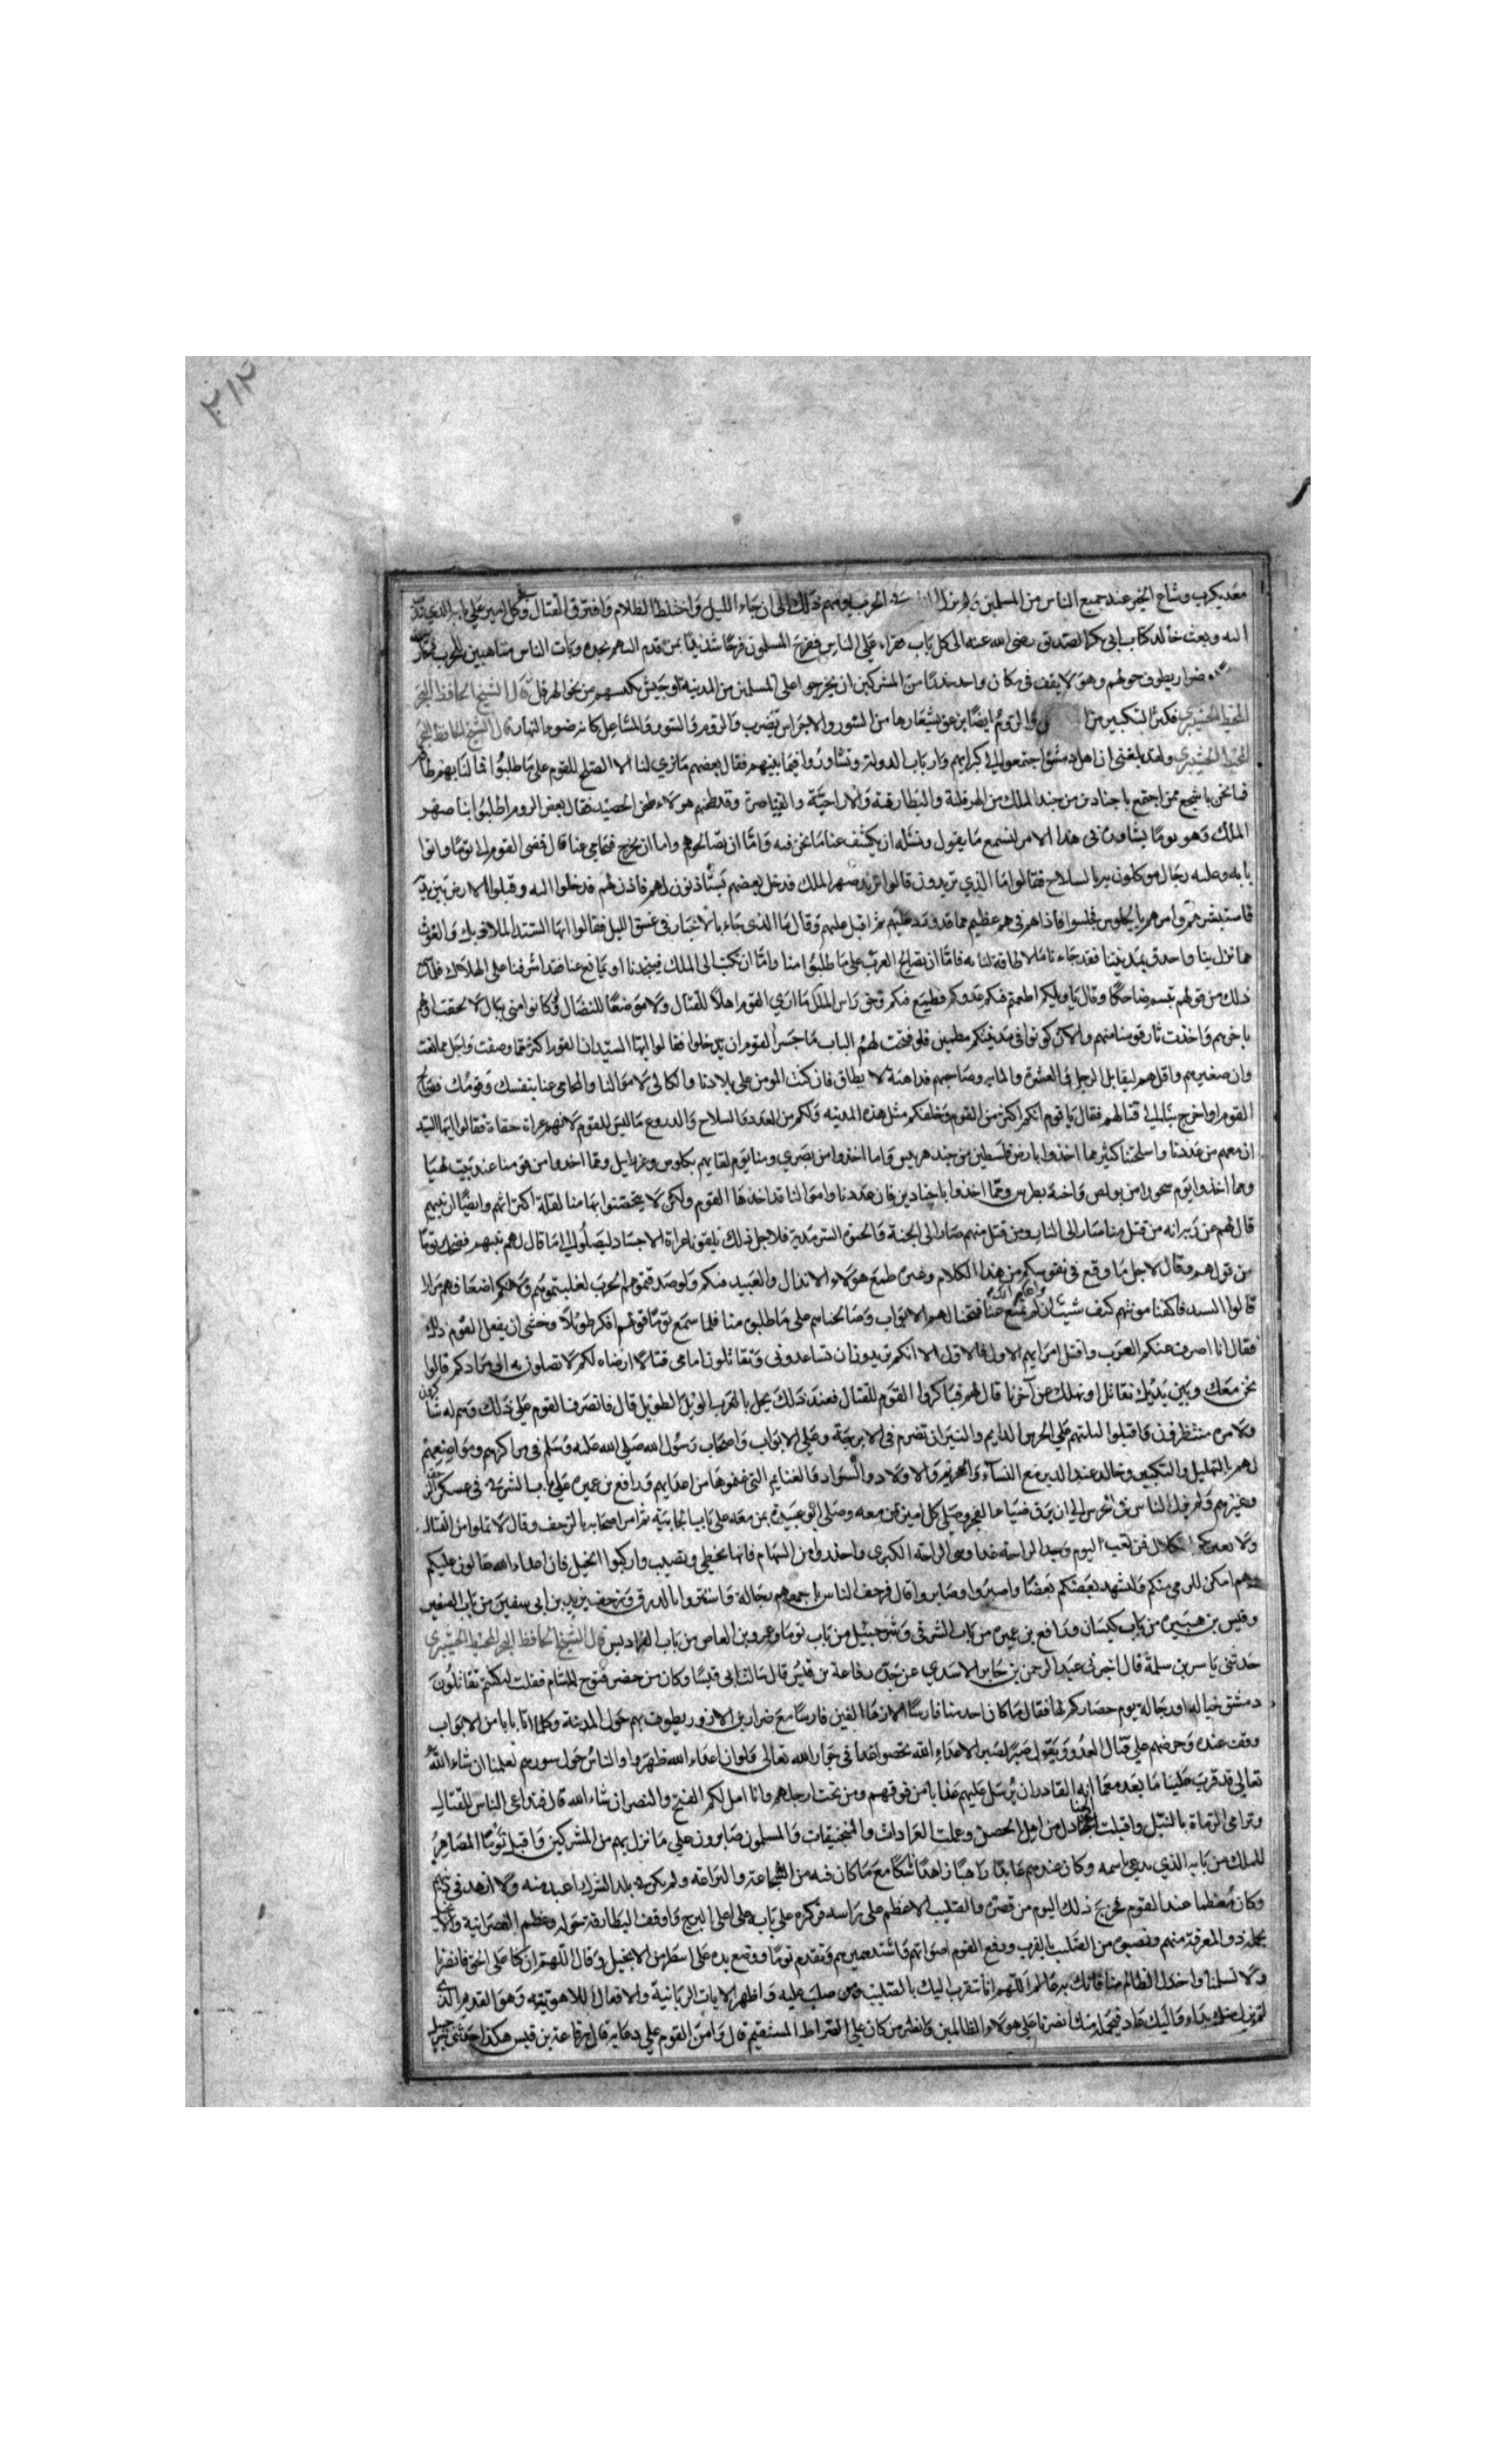 ٢١٢
معديكرب وشاع الخبر عند جميع الناس من المسلمين الحرب يومهم ذلك الى ان جاء الليل واختلط الظلام وافترق القتال وكل امير على بابه الذي
اليه وبعث خالد كتاب ابي بكر الصديق رضي الله عنه الى كل باب على الناس ففرح المسلمون فرحا شديدا بمن قدم اليهم نجده وبات الناس متاهبين للحرب
ضرار يطوف حولهم وهو لا يقف في مكان واحد حذرا من المشركين ان يخرجوا على المسلمين من المدينة او جيش يكبسهم من نحو الهرقل قال الشيخ الحافظ
فكثر التكبير من والروم ايضا يزعق بشعارها من السور والاجراس تضرب والروم والسور والمشاعل كانه ضوء النهار قال الشيخ الحافظ
ولقد بلغني ان اهل دمشق اجتمعوا الى كبرايهم وارباب الدولة وتشاوروا فيما بينهم فقال بعضهم ما نري لنا الا الصلح للقوم على ما طلبوا فما لنا بهم طاقة
فما نحن باشجع ممن اجتمع باجنادين من جند الملك من الهرقلية والبطارقة والاراحية والقياصرة وقد طحنهم هولاء طحن الحصيد فقال بعض الروم اطلبوا بنا صهر
الملك وهو توما يشاوره في هذا الامر لنسمع ما يقول ونسئله ان يكشف عنا ما نحن فيه واما ان يصالحوهم واما ان يخرج فيحامي عنا قال فمضى القوم الى توما واتوا
بابه وعليه رجال موكلون بالسلاح فقالوا ما الذي تريدون قالوا نريد صهر الملك فدخل بعضهم يستاذنون لهم فاذن لهم فدخلوا اليه وقبلوا الارض بين يديه
فاستبشرهم وامرهم بالجلوس فجلسوا فاذا هم في هم عظيم مما قد ورد عليهم ثم اقبل عليهم وقال ما الذي جاء بالاخبار في غسق الليل فقالوا ايها السيد
مما نزل بنا واحدق بمدينتنا فقد جاءنا ما لا طاقة لنا به فاما ان نصالح العرب على ما طلبوا منا واما ان نكتب الى الملك فينجدنا او يمانع عنا فقد اشرفنا على الهلاك فلما
ذلك من قولهم تبسم ضاحكا وقال يا ويلكم اطمعتم فيكم عدوكم فطمع فيكم وحق راس الملك ما ارى القوم اهلا للقتال ولا موضعا للنضال
باخرهم واخذت ثار قومنا منهم والان كونوا في مدينتكم مطمين فلو فتحت لهم الباب ما جسر القوم ان يدخلوا فقالوا ايها السيد ان القوم اكثر مما وصفت واجل مما نعت
وان صغيرهم واقلهم ليقابل الرجل والعشرة والمايه وصاحبهم فداهية لا يطاق فان كنت المومن على بلادنا والكالي لاموالنا والمحامي عنا بنفسك وقومك فصالح
القوم او اخرج بنا الى قتالهم فقال يا قوم انكم اكثر من القوم وخلفكم مثل هذه المدينه ولكم من العدد والسلاح والدروع ما ليس للقوم لانهم عراة حفاة فقالوا ايها السيد
ان معهم من عددنا واسلحتنا كثير مما اخذوا بارض فلسطين من جند هربيس واما اخذوا من بصري ومنا يوم لقايهم بكلوس وعزرايل ومما اخذوا منا عند بيت لهيا
ومما اخذوا يوم من بولص واخيه بطرس ومما اخذوا باجنادين فان عددنا واموالنا قد اخذها القوم ولكن لا يتحصنوا بها منا لقلة اكتراثهم وايضا ان نبيهم
قال لهم عن ربه انه من قتل منا صار الى النار ومن قتل منهم صار الى الجنة والحيوة السرمدية فلاجل ذلك يلقونا عراة الاجساد ليصلوا الى ما قال لهم نبيهم فضحك توما
من قولهم وقال لاجل ما وقع في نفوسكم من هذا الكلام وغيره طمع هولاء الانذال والعبيد فيكم ولو صدقتموهم الحرب لغلبتموهم ولانكم اضعافهم مرارا
قالوا السيد فاكفنا مونتهم كيف شيت واعلم انك ان لم تمنع عنا فتحنا لهم الابواب وصالحناهم على ما طلبوا منا فلما سمع توما قولهم افكر طويلا وخشي ان يفعل القوم ذلك
فقال انا اصرف عنكم العرب واقتل اميرهم الاول فالاول الا انكم تريدون ان تساعدوني وتقاتلون امامي قتالا ارضاه لكم لا تصلون به الى مرادكم قالوا
نحن معك وبين يديك نقاتل او نهلك عن آخرنا قال لهم فباكروا القوم للقتال فعند ذلك يحل بالعرب الويل الطويل قال فانصرف القوم على ذلك وهم له شاكرون
ولامره منتظرون واقبلوا ليلتهم على الحرس الدايم والنيران تضرم في الابرجة وعلى الابواب واصحاب رسول الله صلى الله عليه وسلم في مراكزهم ومواضعهم
لهم بالتهليل والتكبير وخالد عند الدير مع النساء والحريم والاولاد والسواد والغنايم التي غنموها من اعدايهم ورافع بن عميره على باب الشرقي في عسكر
وغيرهم ولم يزل الناس في الحرس الى ان برق ضياء الفجر وصلى كل امير بمن معه وصلى ابو عبيدة بمن معه على باب الجابيه ثم امر اصحابه بالزحف وقال لا تملوا من القتال
فمن تعب اليوم وجد الراحة غدا وهي الراحة الكبرى واحذروا من السهام فانها تخطي وتصيب واركبوا الخيل فان اعداء الله عالون عليكم
وهم امكن للرمي منكم وليشهد بعضكم بعضا واصبروا وصابروا قال فزحف الناس باجمعهم رجالة واستتروا بالدرق وزحف يزيد بن ابي سفين من باب الصغير
وقيس بن هبيره من باب كيسان ورافع بن عميره من باب الشرقي وشرحبيل من باب توما وعمرو بن العاص من باب الفراديس قال الشيخ الحافظ
حدثني ياسر بن سلمة قال اخبرني عبد الرحمن بن جابر الاسدي عن جده رفاعة بن قيس قال سالت ابي قيسا وكان ممن حضر فتوح الشام فقلت اكنتم تقاتلون
دمشق خيالة او رجالة يوم حصاركم لها فقال ما كان احد منا فارسا الا زهاء الفين فارسا مع ضرار بن الازور يطوف بهم حول المدينة وكلما اتا بابا من الابواب
وقف عنده وحرضهم على قتال العدو ويقول صبرا صبرا لاعداء الله تخصوا غدا في جوار الله تعالى ولو ان اعداء الله ظهروا والناس حول سورهم لعلمنا ان شاء الله
تعالى قد قرب علينا ما بعده مما انه القادر ان يرسل عليهم عذابا من فوقهم ومن تحت ارجلهم وانا امل لكم الفتح والنصر ان شاء الله قال فتداعى الناس للقتال
وترامى الرماة بالنبل واقبلت الجنادل من اهل الحصن وعملت العرادات والمنجنيقات والمسلمون صابرون على ما نزل بهم من المشركين واقبل توما المصاهر
للملك من بابه الذي يدعى باسمه وكان عندهم عابدا راهبا زاهدا ناسكا مع ما كان فيه من الشجاعة والبراعة ولم يكن في بلد الشرك اعبد منه ولا ازهد في دينهم
وكان معظما عند القوم فخرج ذلك اليوم من قصره والصليب الاعظم على راسه فركزه على باب على اعلى البرج واوقف البطارقة حوله وعظم النصرانية
ذو المعرفة منهم ونصبوه من الصليب بالقرب ورفع القوم اصواتهم واشتد ضجيجهم وتقدم توما ووضع يده على اسطر من الانجيل وقال اللهم ان كنا على الحق فانصرنا
ولا تسلمنا واخذل الظالم منا فانك به عالم اللهم انا نتقرب اليك بالصليب ومن صلب عليه واظهر الايات الربانية والافعال اللاهوتية وهو القديم الذي
لم يزل منك بداء واليك عاد انصرنا على هولاء الظالمين وانصر من كان على الصراط المستقيم قال وامن القوم على دعايه قال رفاعة بن قيس هكذا حدثني شرحبيل